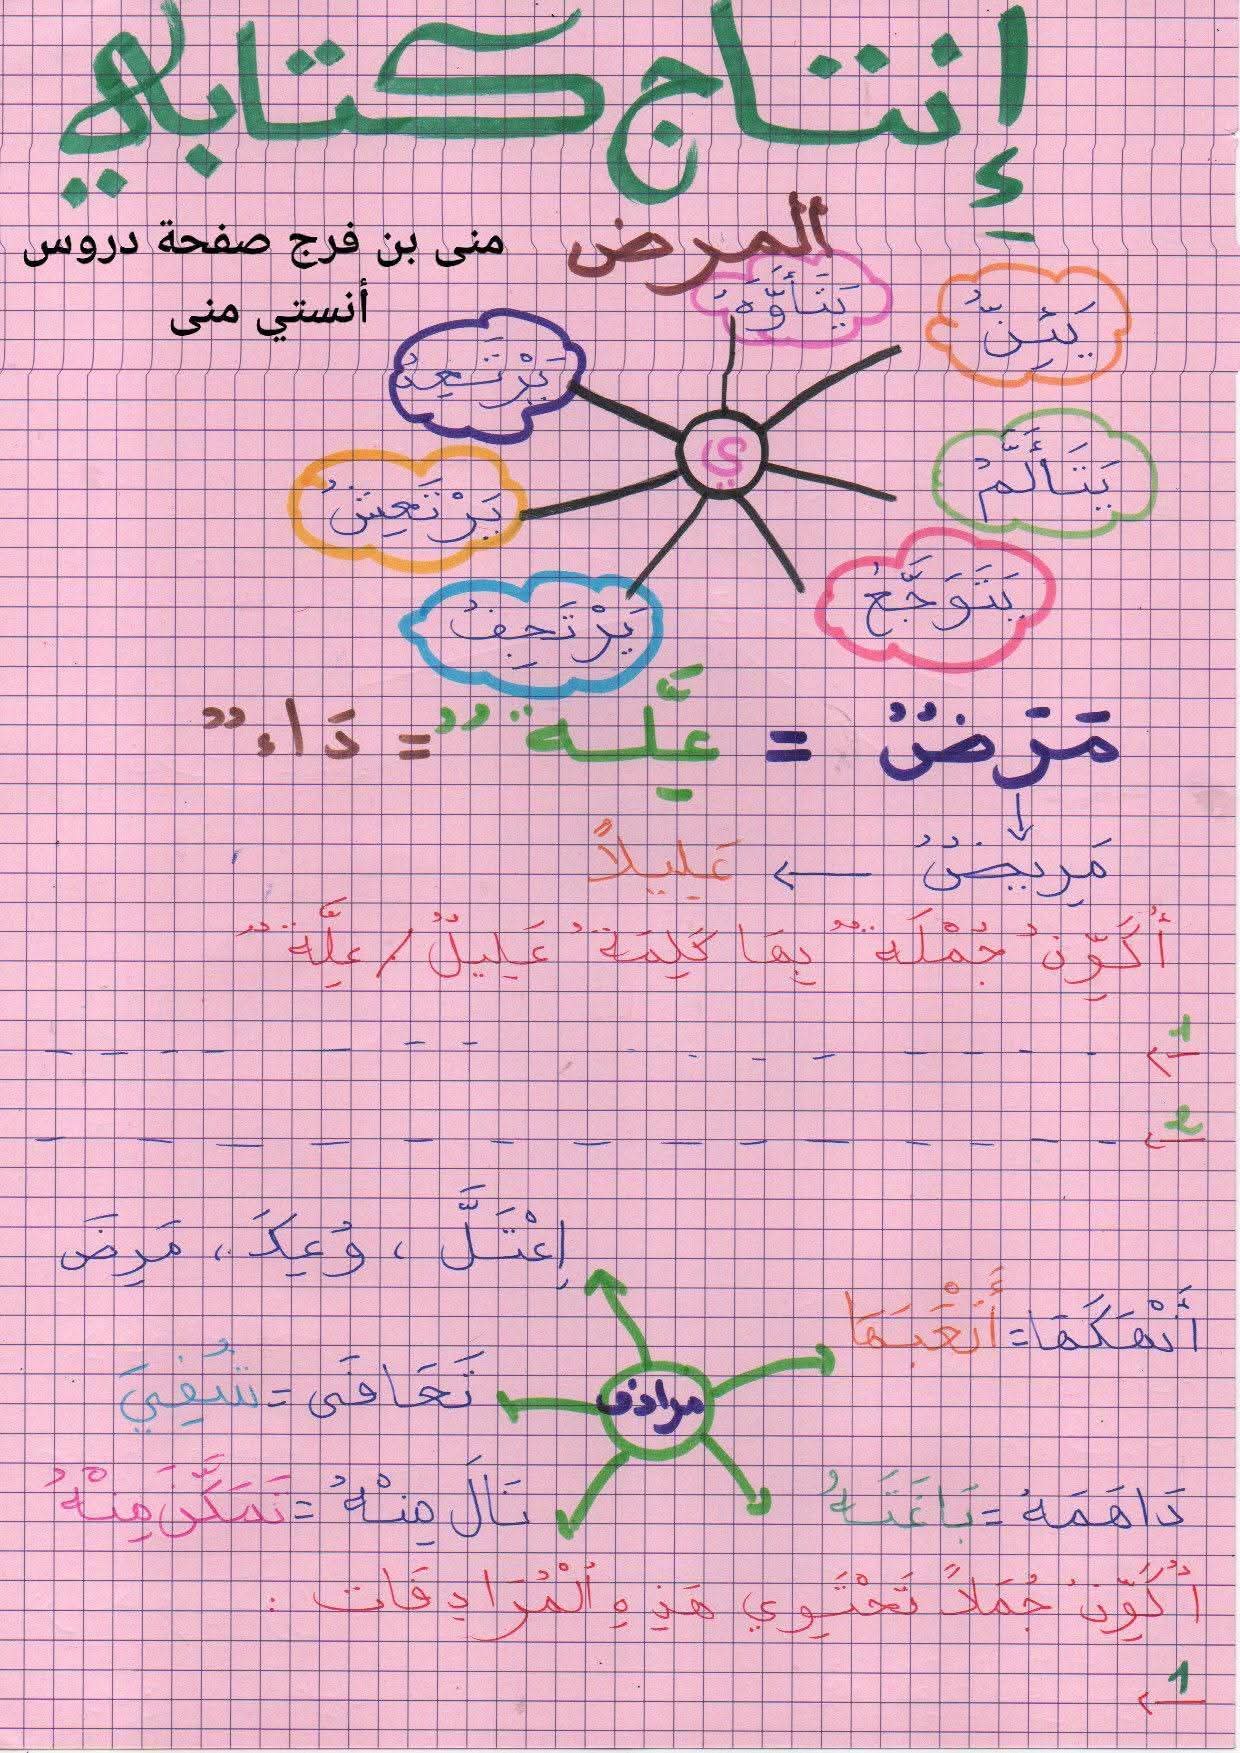 إِنتاج كتابي
المرض
منى بن فرج صفحة دروس
أنستي منى
يَتَأَوَّهُ
يَئِنُّ
يَرْتَعِدُ
ي
يَتَأَلَّمُ
يَرْتَعِشُ
يَتَوَجَّعُ
يَرْتَجِفُ
مَرَضٌ = عِلَّةٌ = دَاءٌ
مَرِيضٌ ← عَلِيلاً
أُكَوِّنُ جُمْلَةً بِهَا كَلِمَةُ عَلِيلٌ / عِلَّةٌ
1
2
اِعْتَلَّ ، وُعِكَ ، مَرِضَ
أَنْهَكَهَا = أَتْعَبَهَا
تَعَافَى = شُفِيَ
مرادف
دَاهَمَهُ = بَاغَتَهُ
نَالَ مِنْهُ = تَمَكَّنَ مِنْهُ
أُكَوِّنُ جُمَلاً تَحْتَوِي هَذِهِ الْمُرَادِفَات :
1